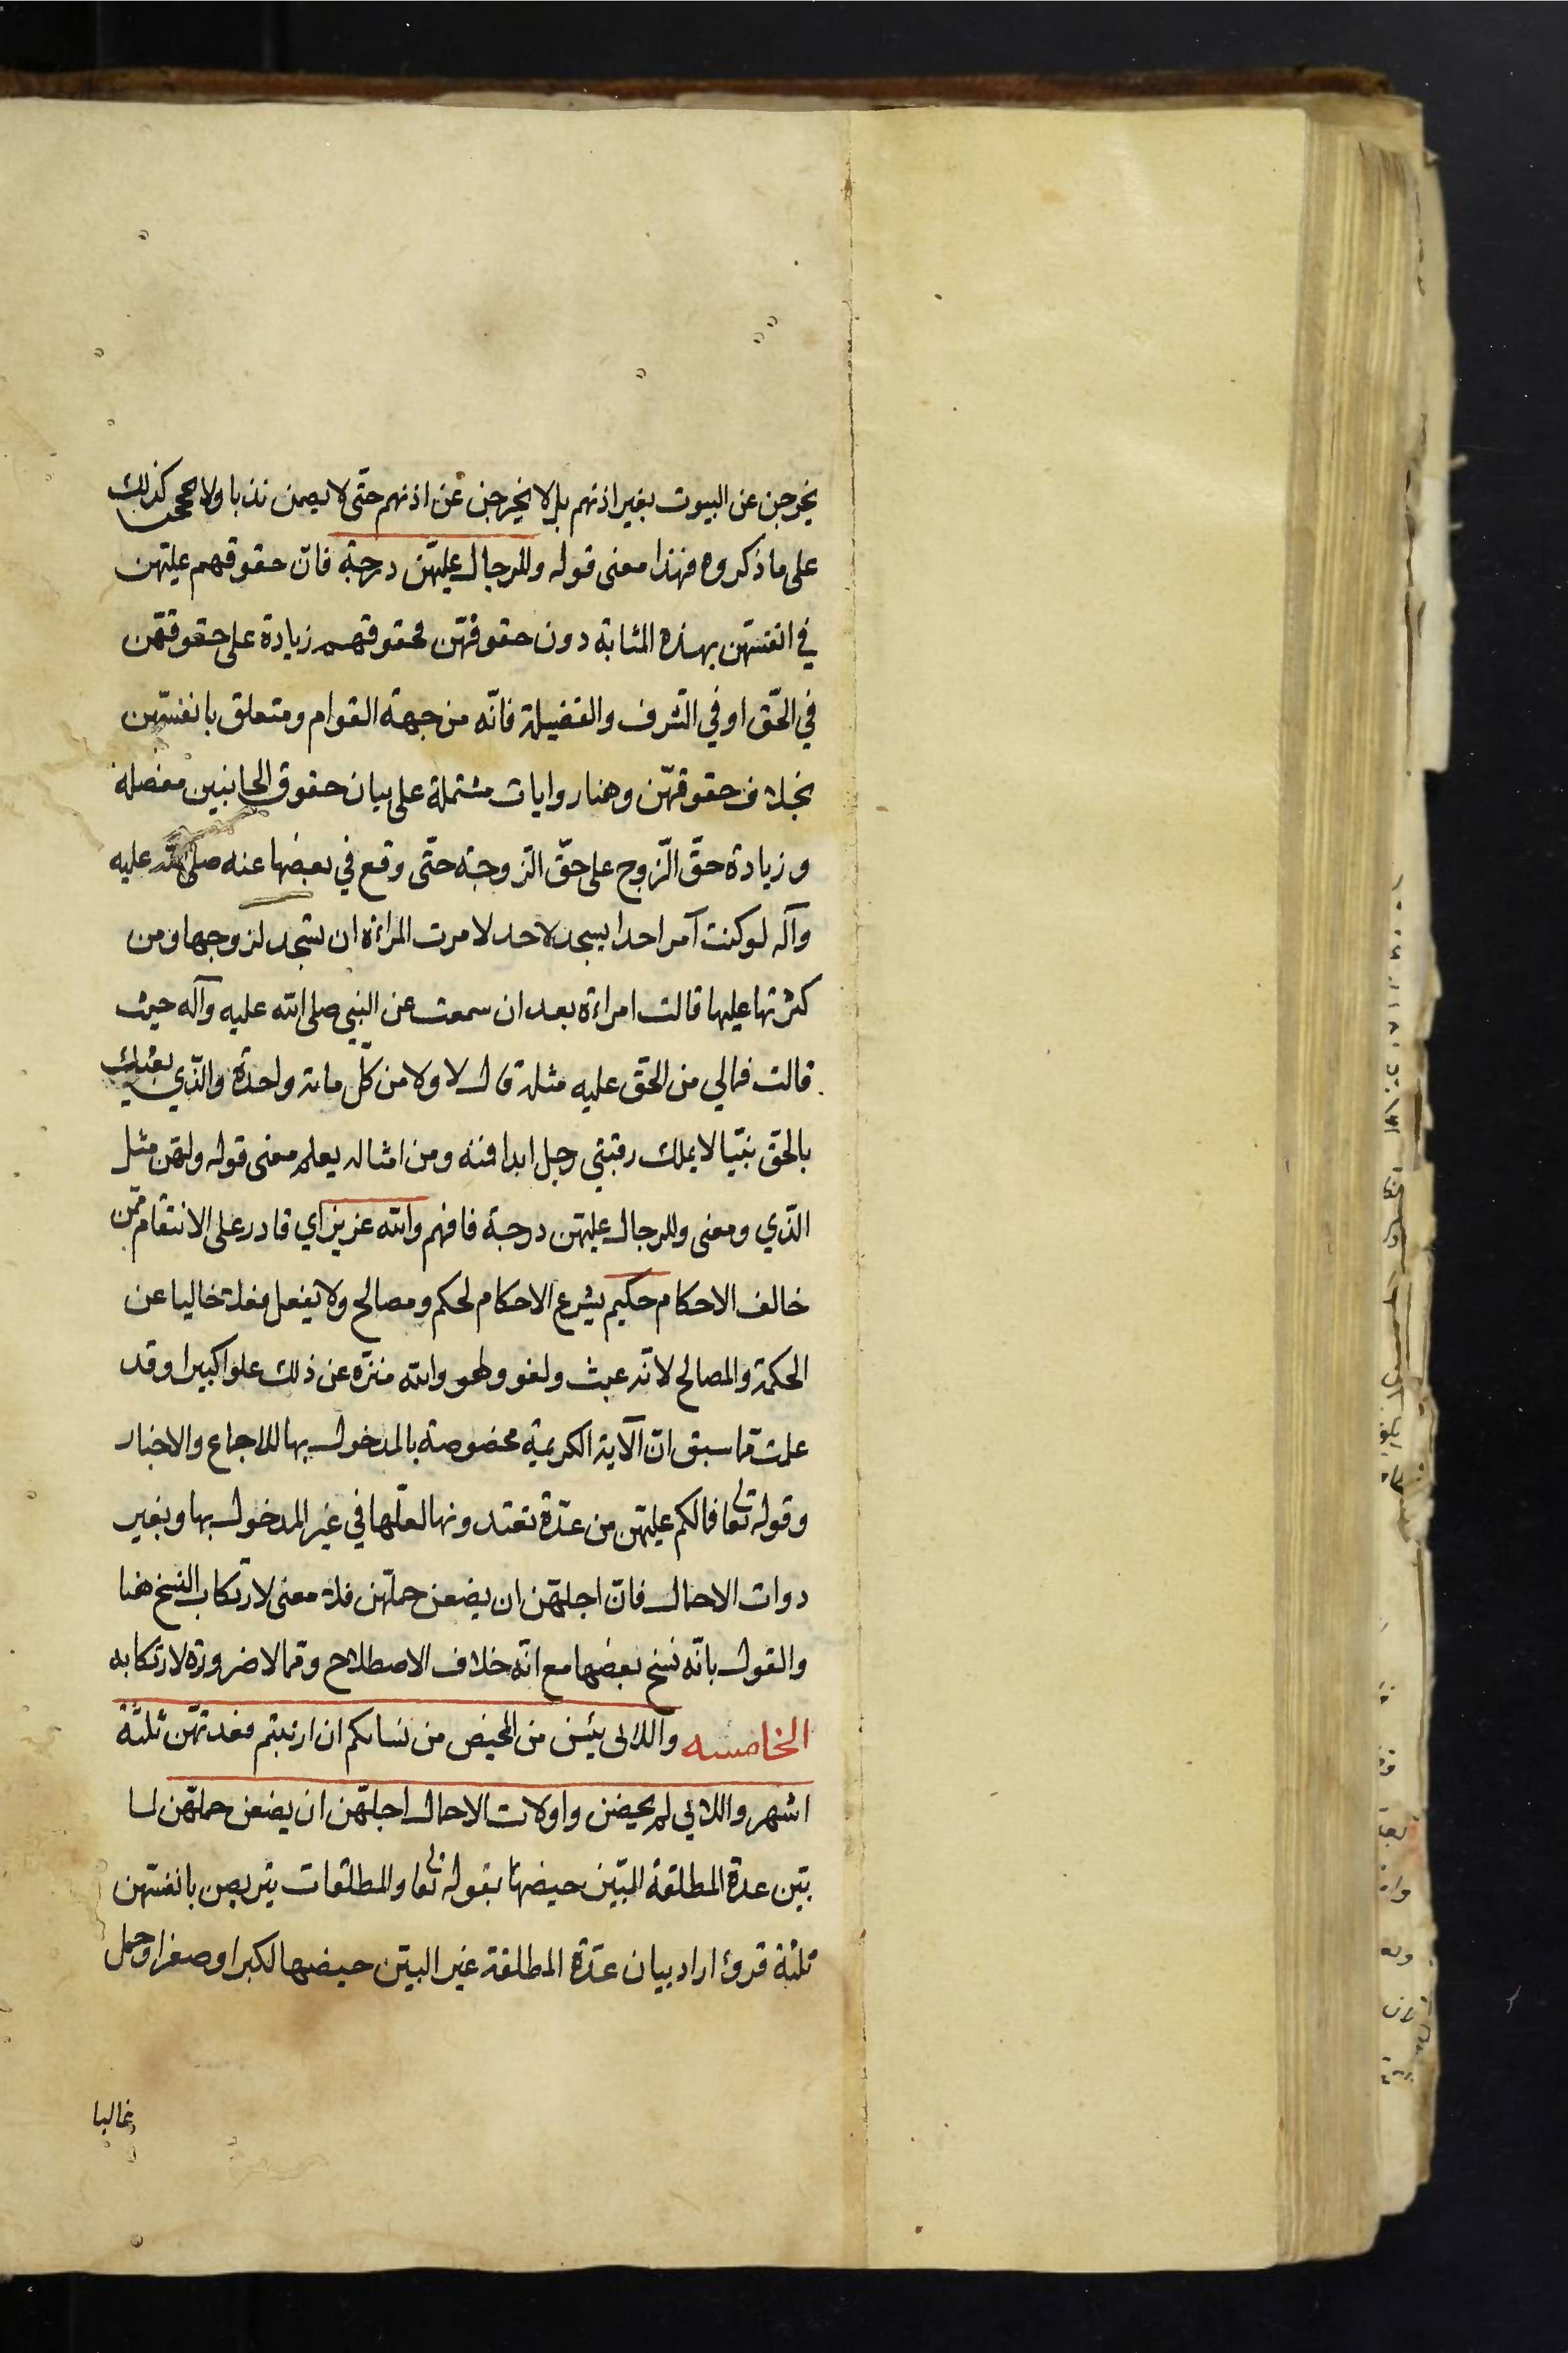 يخرجن عن البيوت بغير اذنهم بل لا يخرجن عن اذنهم حتى لا يصمن ندبا ولا يحججن كذلك
على ما ذكروه فهذا معنى قوله وللرجال عليهّن درجة فانّ حقوقهم عليهن
في انفسهن بهذه المثابة دون حقوقهن فحقوقهم زيادة على حقوقهّن
في الحّق او في الشرف والفضيلة فانّه من جهة القوام ومتعلق بانفسهن
بخلاف حقوقهّن وهنا روايات مشتملة على بيان حقوق الجانبين مفصلة
وزيادة حقّ الّزوج على حقّ الزوجة حتّى وقع في بعضها عنه صلى الله عليه
وآله لو كنت آمر احدا يسجد لاحد لامرت المراءة ان تسجد لزوجها ومن
كثرتها عليها قالت امراءة بعد ان سمعت عن النبي صلى الله عليه وآله حيث
قالت فمالي من الحّق عليه مثله قال لا ولا من كلّ مائة واحدة والذّي بعثك
بالحّق نبّيا لا يملك رقبتي رجل ابدا فنه ومن امثاله يعلم معنى قوله ولهّن مثل
الذّي ومعنى وللرجال عليهّن درجة فافهم والله عزيز اي قادر على الانتقام ممّن
خالف الاحكام حكيم يشرع الاحكام لحكم ومصالح ولا يفعل فعلا خاليا عن
الحكمة والمصالح لانّه عبث ولغو ولهو والله منزّه عن ذلك علوا كبيرا وقد
علمت مّما سبق انّ الآية الكريمة مخصوصة بالمدخول بها للاجماع والاخبار
وقوله تعالى فمالكم عليهّن من عدّة تعتدونها لعلّها في غير المدخول بها وبغير
ذوات الاحمال فانّ اجلهّن ان يضعن حملهّن فلا معنى لارتكاب النسخ هنا
والقول بانّه نسخ بعضها مع انّه خلاف الاصطلاح ومّما لا ضرورة لارتكابه
الخامسه واللائى يئسن من المحيض من نسائكم ان ارتبتم فعدتهّن ثلثة
اشهر واللائي لم يحضن واولات الاحمال اجلهّن ان يضعن حملهّن لما
بيّن عدة المطلقة البيّن حيضها بقوله تعالى والمطلقات يتربصن بانفسهن
ثلثة قروء اراد بيان عدّة المطلقة غير البيّن حيضها لكبر او صغر او حمل
غالبا